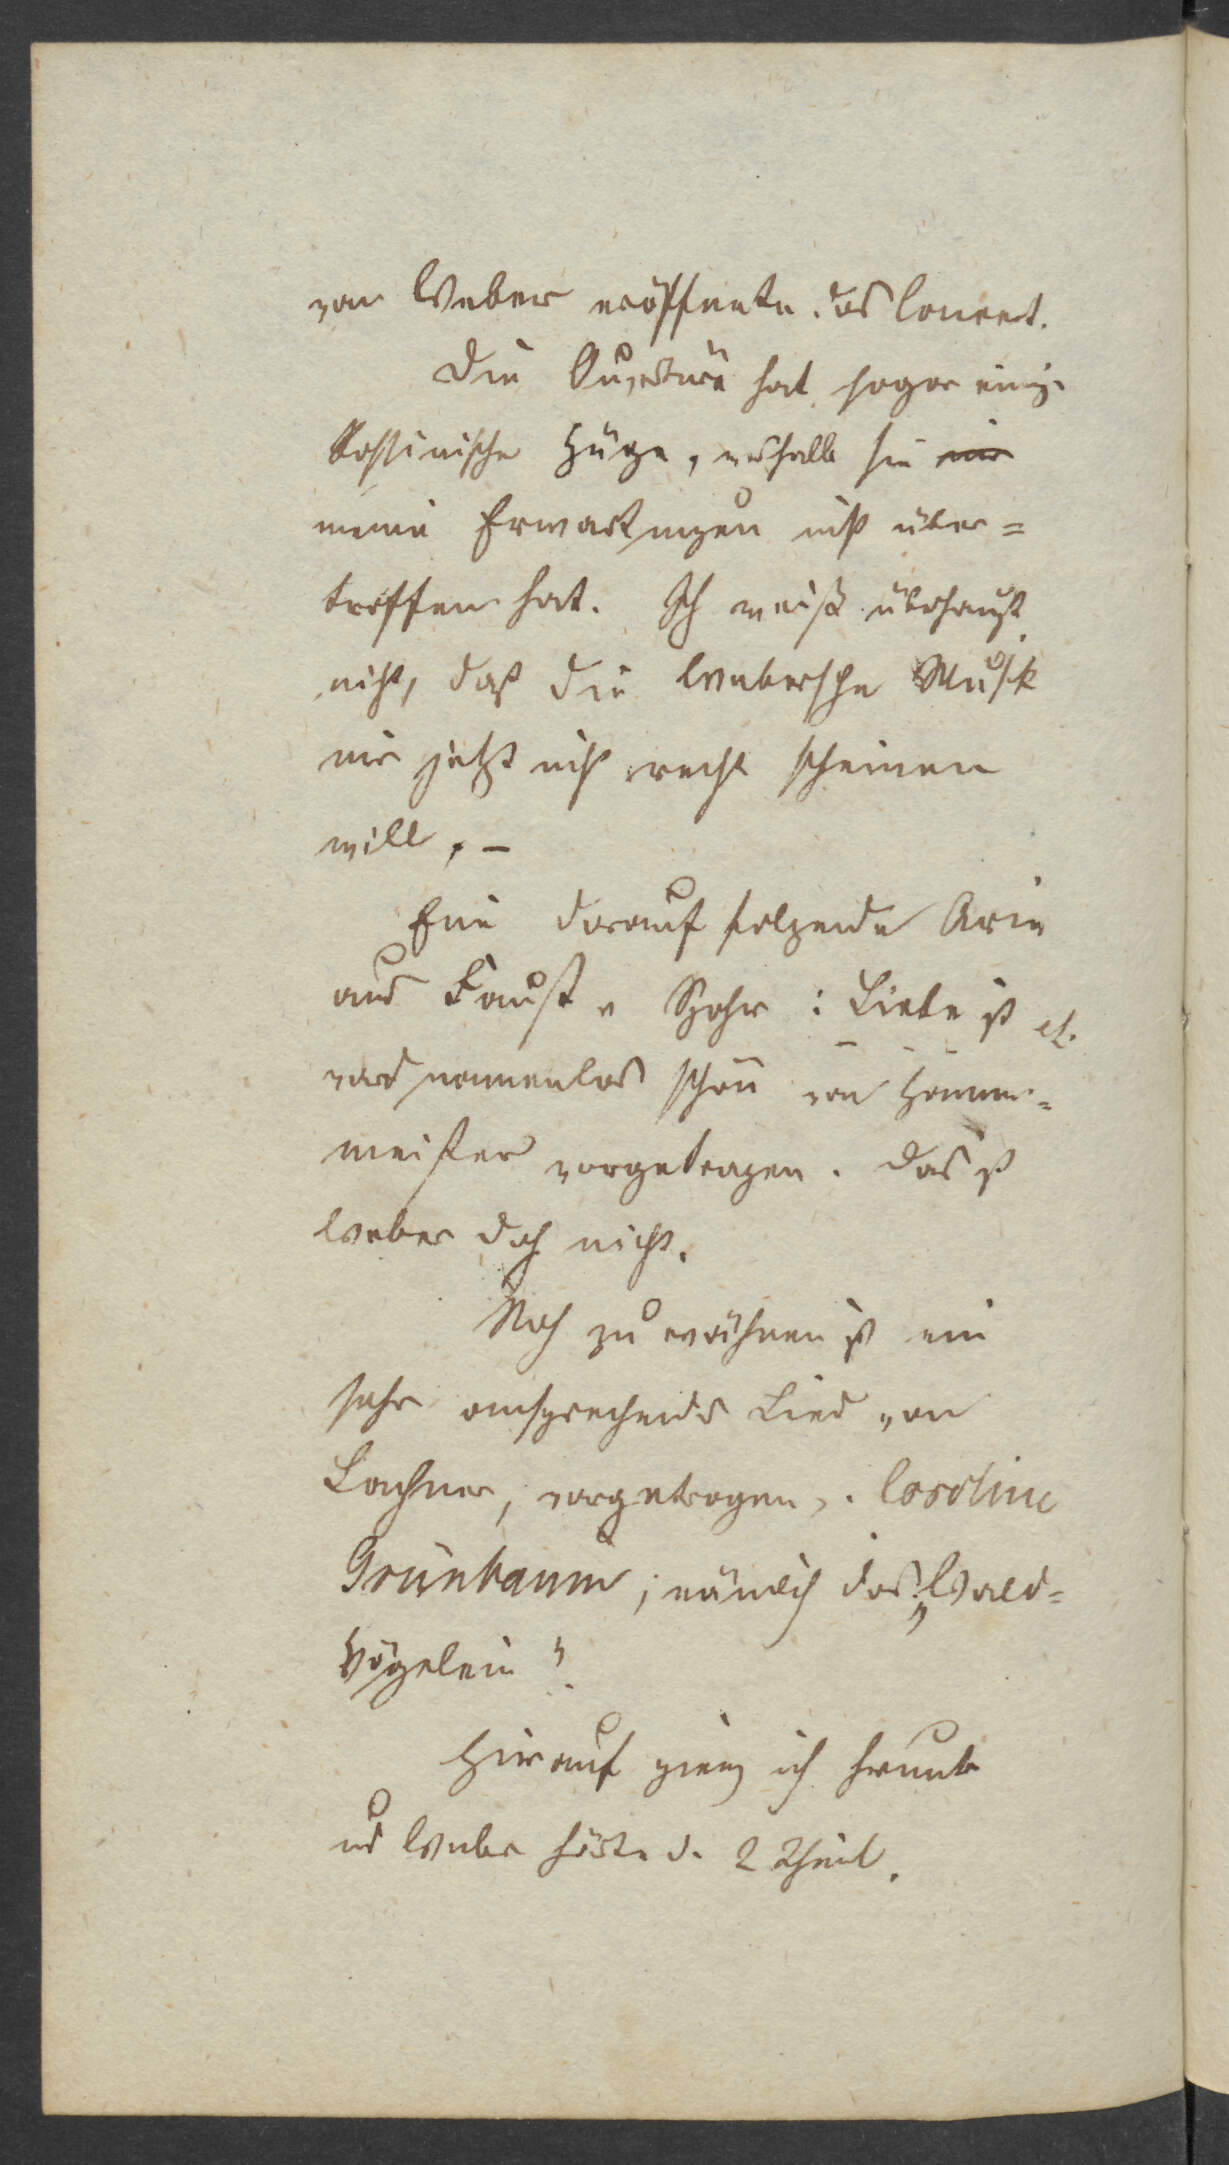 von Weber eröffnete das Concert.
Die Ouvertüre hat sogar einige
Rossinische Züge, weshalb sie mir
meine Erwartungen nicht über=
troffen hat. Ich weiß überhaupt
nicht, daß die Webersche Musik
mir jetzt nicht recht scheinen
will. –
Eine darauf folgende Arie
aus Faust v Spohr: Liebe ist etc.
ward namenlos schön von Hammer=
meister vorgetragen. Das ist
Weber doch nicht.
Noch zu erwähnen ist ein
sehr ansprechendes Lied von
Lachner, vorgetragen v. Caroline
Grünbaum, nämlich das: „Wald=
vögelein“.
Hierauf gieng ich herunter
und Weber hörte d. 2 Theil.